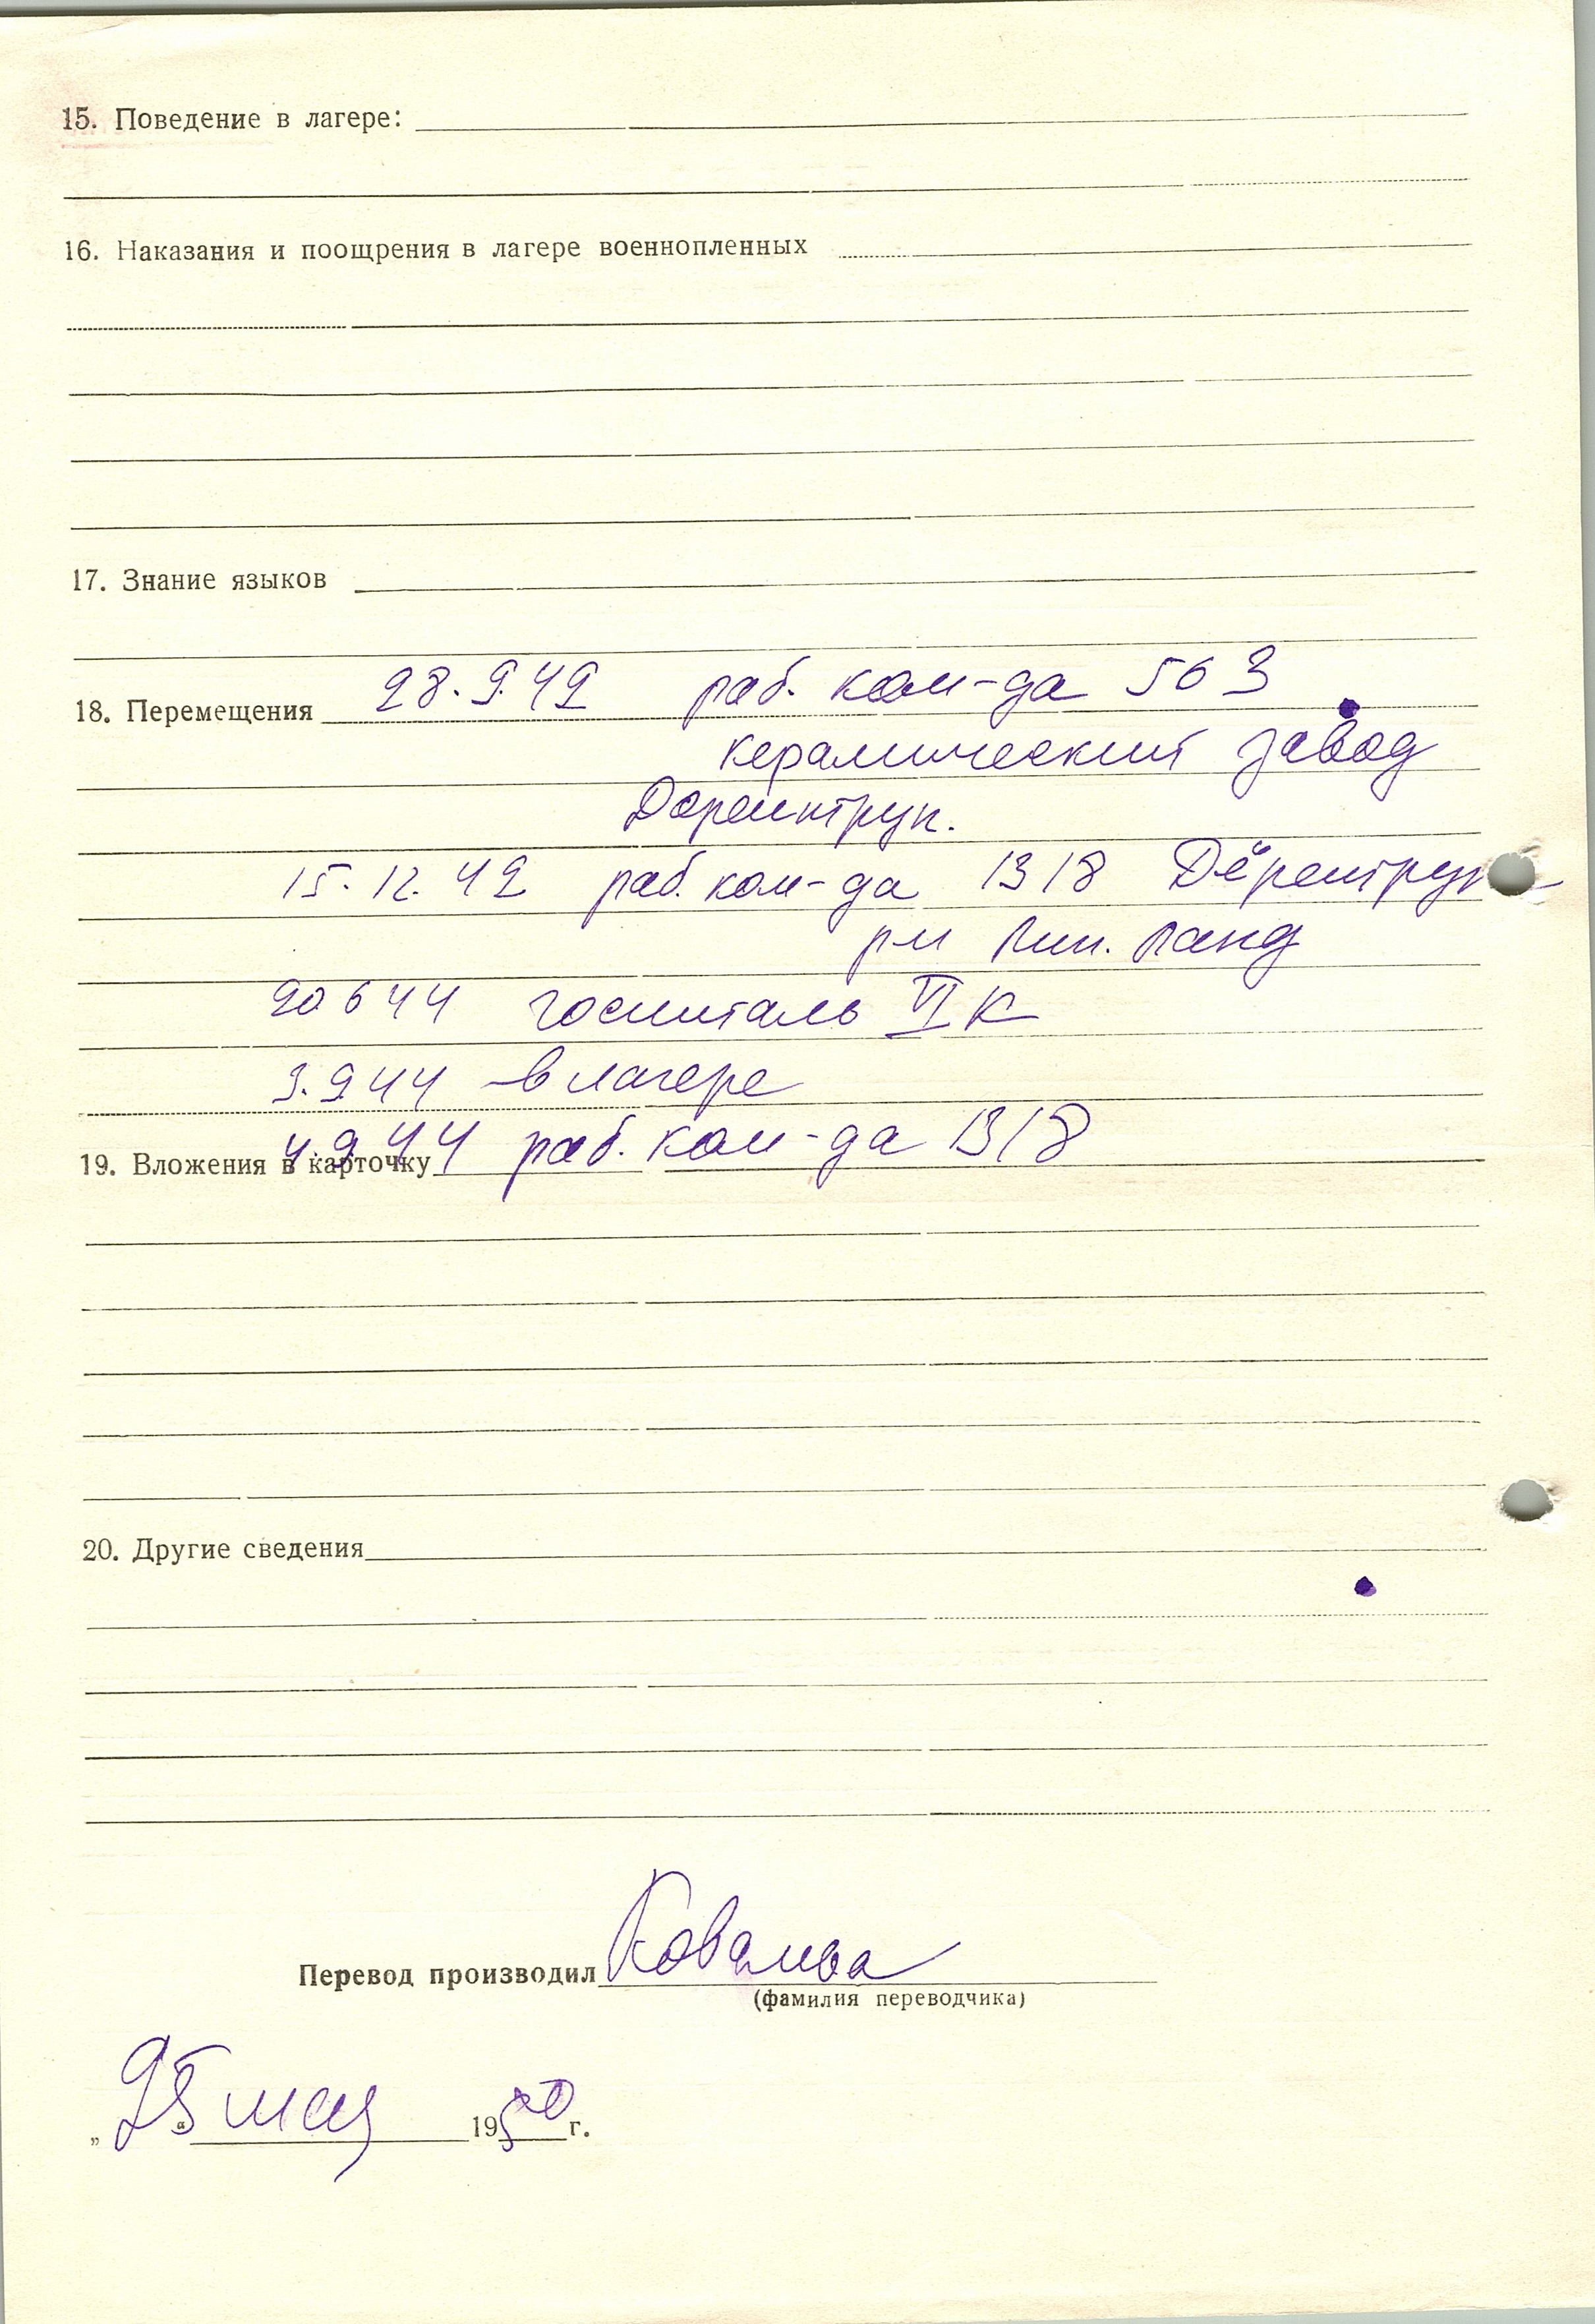 15. Поведение в лагере:
16. Наказания и поощрения в лагере военнопленных
17. Знание языков
18. Перемещения 28.9.42 раб. ком-да 563
керамический завод
Дерентруп.
15.12.42 раб. ком-да 1318 Дёрентруп
Лип. Ланд
20 6 44 госпиталь VI К
3.9 44 - в лагере
4 9 44 раб. ком-да 1318
19. Вложения в карточку
20. Другие сведения
Перевод производил
(фамилия переводчика)
„ 25 “ мая 1950 г.